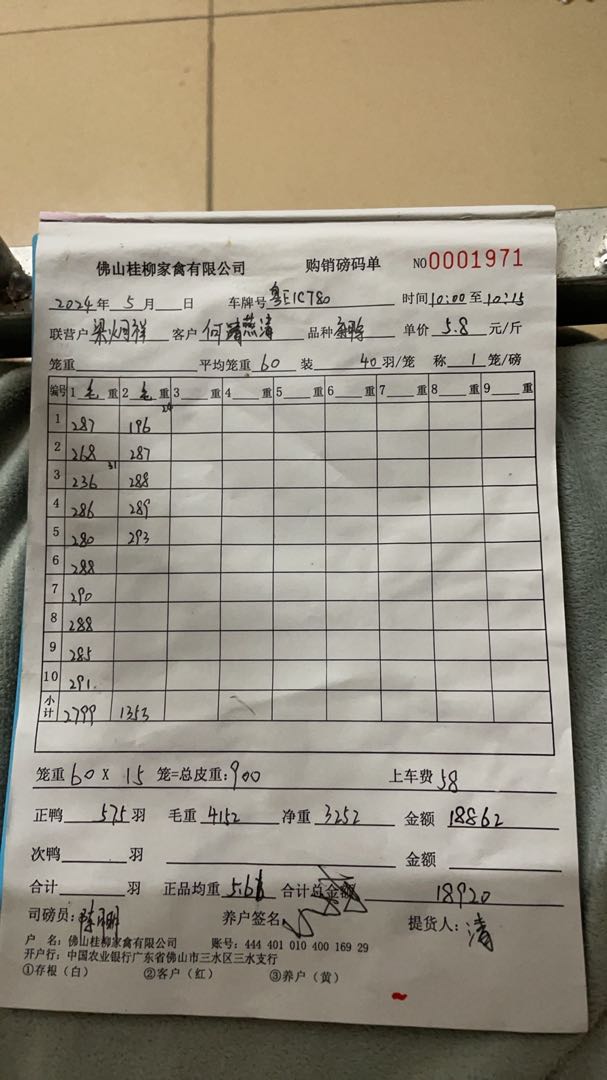 佛山桂柳家禽有限公司 购销磅码单 NO0001971
2024年5月 日 车牌号 粤E1C780 时间10:00至10:15
联营户 梁炳祥 客户 何 燕清 品种 单价 5.8 元/斤
笼重 平均笼重 60 装 40 羽/笼 称 1 笼/磅
编号 1 毛 重 2 毛 重 3 重 4 重 5 重 6 重 7 重 8 重 9 重
1 287 196 24
2 268 287
3 236 31 288
4 286 289
5 280 293
6 288
7 290
8 288
9 285
10 291
小计 2799 1353
笼重 60 X 15 笼=总皮重:900 上车费 58
正鸭 575 羽 毛重 4152 净重 3252 金额 18862
次鸭 羽 金额
合计 羽 正品均重 5.66 合计总金额 18920
司磅员: 养户签名 提货人: 清
户 名: 佛山桂柳家禽有限公司 账号: 444 401 010 400 169 29
开户行: 中国农业银行广东省佛山市三水区三水支行
①存根（白） ②客户（红） ③养户（黄）